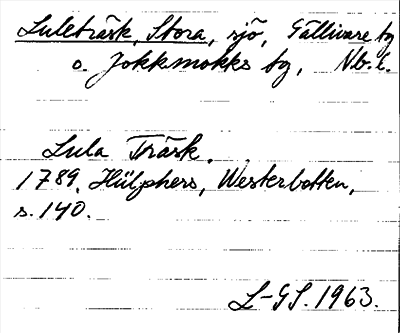 Luleträsk, Stora, sjö, Gällivare tg
o. Jokkmokks tg, Nb. l.
Lula Träsk.
1789. Hülphers, Westerbotten,
s. 140.
L-GS. 1963.